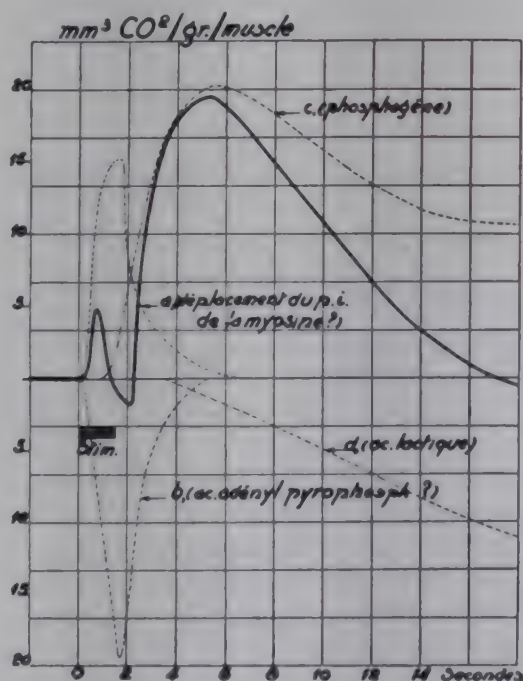 mm³ CO²/gr./muscle
20
c,(phosphogène)
15
10
5
a,déplacement du p.i.
de la myosine?)
5
Stim.
d,(ac. lactique)
b,(ac. adényl pyrophosph.?)
10
15
20
0 2 4 6 8 10 12 14 Secondes